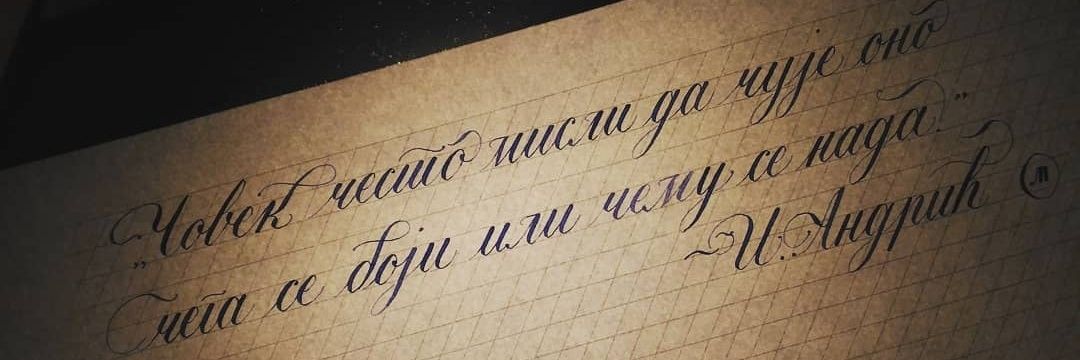 „Човек често мисли да чује оно
чега се боји или чему се нада."
~И. Андрић
M